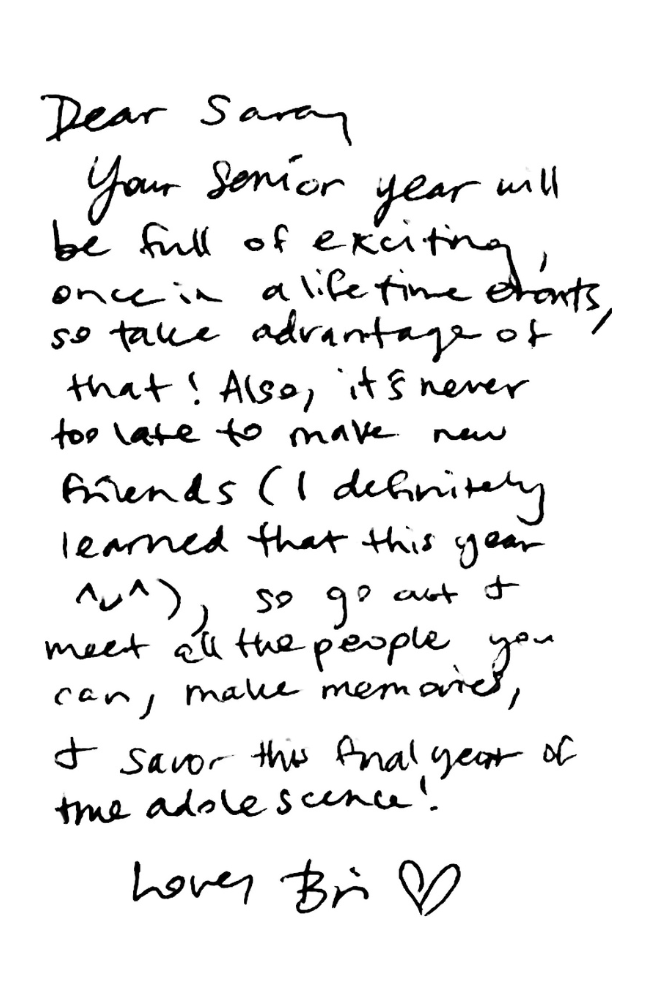 Dear Saray
Your Senior year will
be full of exciting,
once in a lifetime events,
so take advantage of
that! Also, it's never
too late to make new
friends (I definitely
learned that this year
^ᴗ^), so go out &
meet all the people you
can, make memories,
& savor this final year of
true adolescence!
Love, Bri ♡